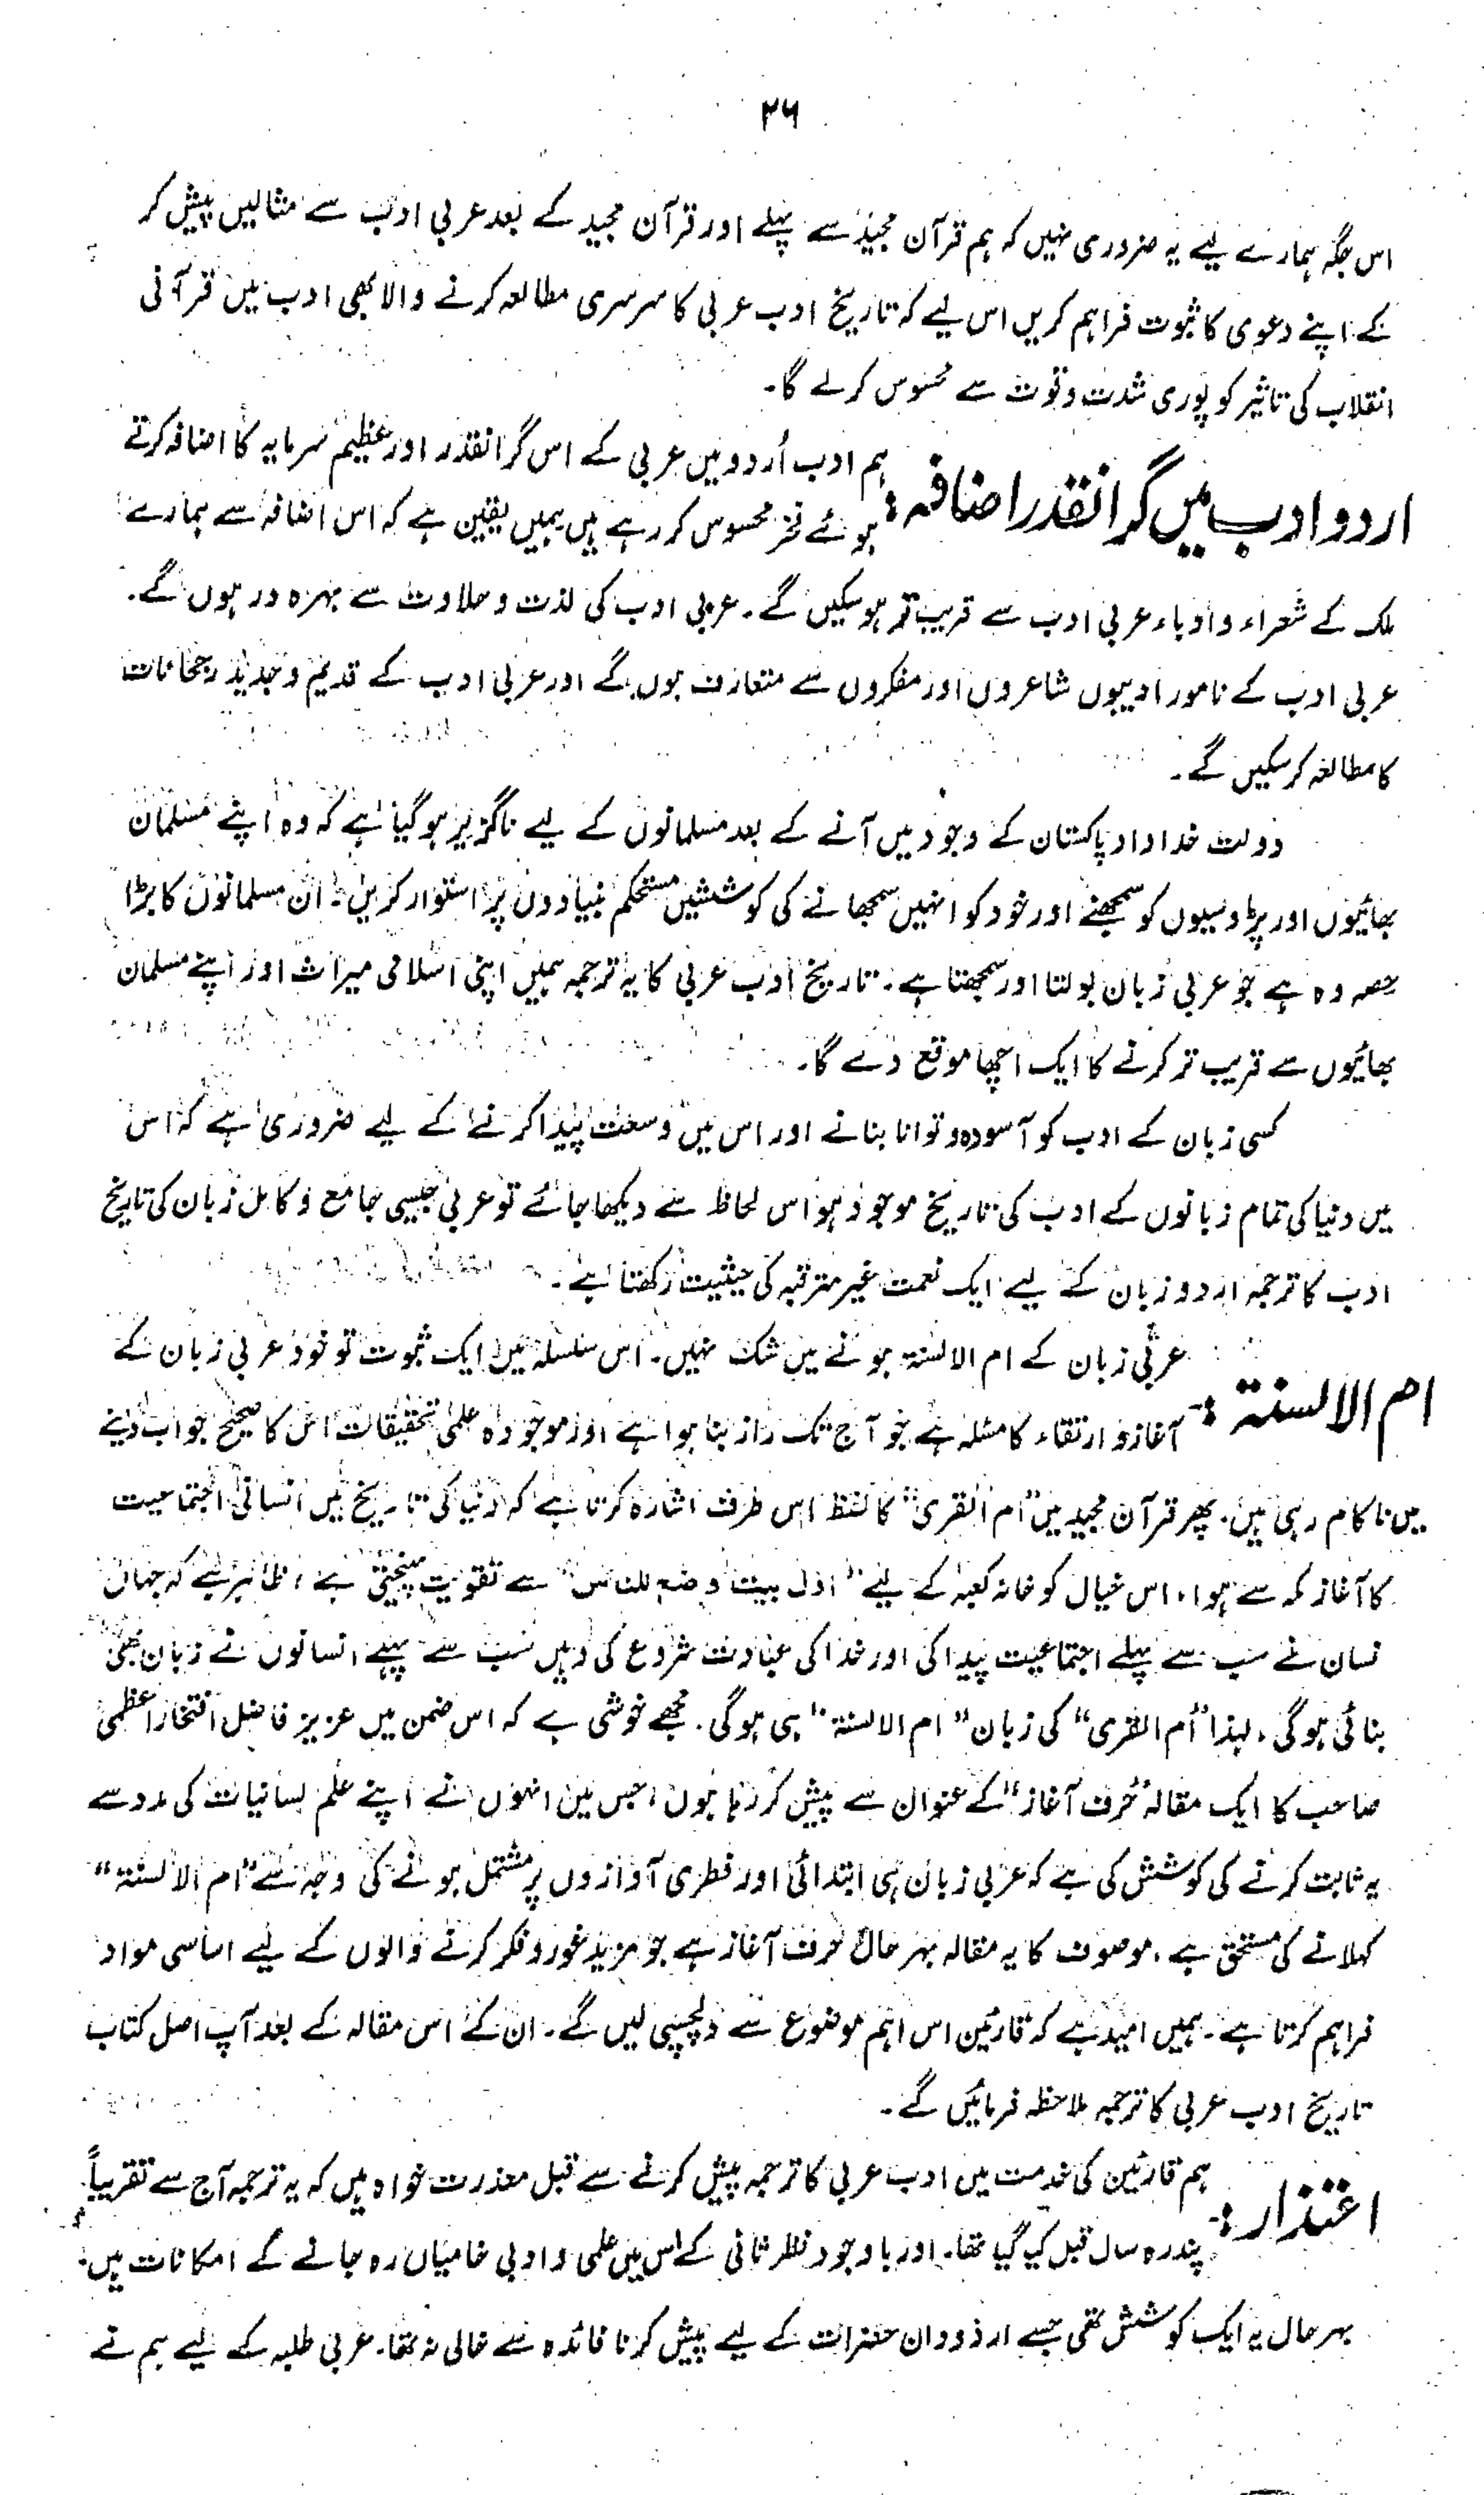 ۲۶
اس جگہ ہمارے لیے یہ ضروری نہیں کہ ہم قرآن مجید سے پہلے اور قرآن مجید کے بعد عربی ادب سے مثالیں پیش کر
کے اپنے دعوی کا ثبوت فراہم کریں اس لیے کہ تاریخ ادب عربی کا سرسری مطالعہ کرنے والا بھی ادب میں قرآنی
انقلاب کی تاثیر کو پوری شدت و قوت سے محسوس کرلے گا۔
اردو ادب میں گرانقدر اضافہ :- ہم ادب اُردو میں عربی کے اس گرانقدر اور عظیم سرمایہ کا اضافہ کرتے
ہوئے فخر محسوس کر رہے ہیں ہمیں یقین ہے کہ اس اضافہ سے ہمارے
ملک کے شعراء و ادباء عربی ادب سے قریب تر ہو سکیں گے۔ عربی ادب کی لذت و حلاوت سے بہرہ ور ہوں گے۔
عربی ادب کے نامور ادیبوں شاعروں اور مفکروں سے متعارف ہوں گے اور عربی ادب کے قدیم و جدید رجحانات
کا مطالعہ کر سکیں گے۔
دولت خداداد پاکستان کے وجود میں آنے کے بعد مسلمانوں کے لیے ناگزیر ہو گیا ہے کہ وہ اپنے مسلمان
بھائیوں اور پڑوسیوں کو سمجھنے اور خود کو انہیں سمجھانے کی کوششیں مستحکم بنیادوں پر استوار کریں۔ ان مسلمانوں کا بڑا
حصہ وہ ہے جو عربی زبان بولتا اور سمجھتا ہے۔ تاریخ ادب عربی کا یہ ترجمہ ہمیں اپنی اسلامی میراث اور اپنے مسلمان
بھائیوں سے قریب تر کرنے کا ایک اچھا موقع دے گا۔
کسی زبان کے ادب کو آسودہ و توانا بنانے اور اس میں وسعت پیدا کرنے کے لیے ضروری ہے کہ اس
میں دنیا کی تمام زبانوں کے ادب کی تاریخ موجود ہو اس لحاظ سے دیکھا جائے تو عربی جیسی جامع و کامل زبان کی تاریخ
ادب کا ترجمہ اردو زبان کے لیے ایک نعمت غیر مترقبہ کی حیثیت رکھتا ہے۔
ام الالسنۃ :- عربی زبان کے ام الالسنۃ ہونے میں شک نہیں۔ اس سلسلہ میں ایک ثبوت تو خود عربی زبان کے
آغاز و ارتقاء کا مسئلہ ہے جو آج تک راز بنا ہوا ہے اور موجودہ علمی تحقیقات اس کا صحیح جواب دینے
میں ناکام رہی ہیں۔ پھر قرآن مجید میں "ام القری" کا لفظ اس طرف اشارہ کرتا ہے کہ دنیا کی تاریخ میں انسانی اجتماعیت
کا آغاز مکہ سے ہوا، اس خیال کو خانہ کعبہ کے لیے "اول بیت وضع للناس" سے تقویت پہنچتی ہے، ظاہر ہے کہ جہاں
نسان نے سب سے پہلے اجتماعیت پیدا کی اور خدا کی عبادت شروع کی وہیں سب سے پہلے انسانوں نے زبان بھی
بنائی ہو گی، لہذا "اُم القری" کی زبان "ام الالسنۃ" ہی ہوگی۔ مجھے خوشی ہے کہ اس ضمن میں عزیز فاضل افتخار اعظمی
صاحب کا ایک مقالہ "حرف آغاز" کے عنوان سے پیش کر رہا ہوں، جس میں انہوں نے اپنے علم لسانیات کی مدد سے
یہ ثابت کرنے کی کوشش کی ہے کہ عربی زبان ہی ابتدائی اور فطری آوازوں پر مشتمل ہونے کی وجہ سے "ام الالسنۃ"
کہلانے کی مستحق ہے، موصوف کا یہ مقالہ بہر حال حرف آغاز ہے جو مزید غور و فکر کرنے والوں کے لیے اساسی مواد
فراہم کرتا ہے۔ ہمیں امید ہے کہ قارئین اس اہم موضوع سے دلچسپی لیں گے۔ ان کے اس مقالہ کے بعد آپ اصل کتاب
تاریخ ادب عربی کا ترجمہ ملاحظہ فرمائیں گے۔
اعتذار :- ہم قارئین کی خدمت میں ادب عربی کا ترجمہ پیش کرنے سے قبل معذرت خواہ ہیں کہ یہ ترجمہ آج سے تقریباً
پندرہ سال قبل کیا گیا تھا۔ اور باوجود نظر ثانی کے اس میں علمی و ادبی خامیاں رہ جانے کے امکانات ہیں۔
بہر حال یہ ایک کوشش تھی جسے اردو دان حضرات کے لیے پیش کرنا فائدہ سے خالی نہ تھا۔ عربی طلبہ کے لیے ہم نے